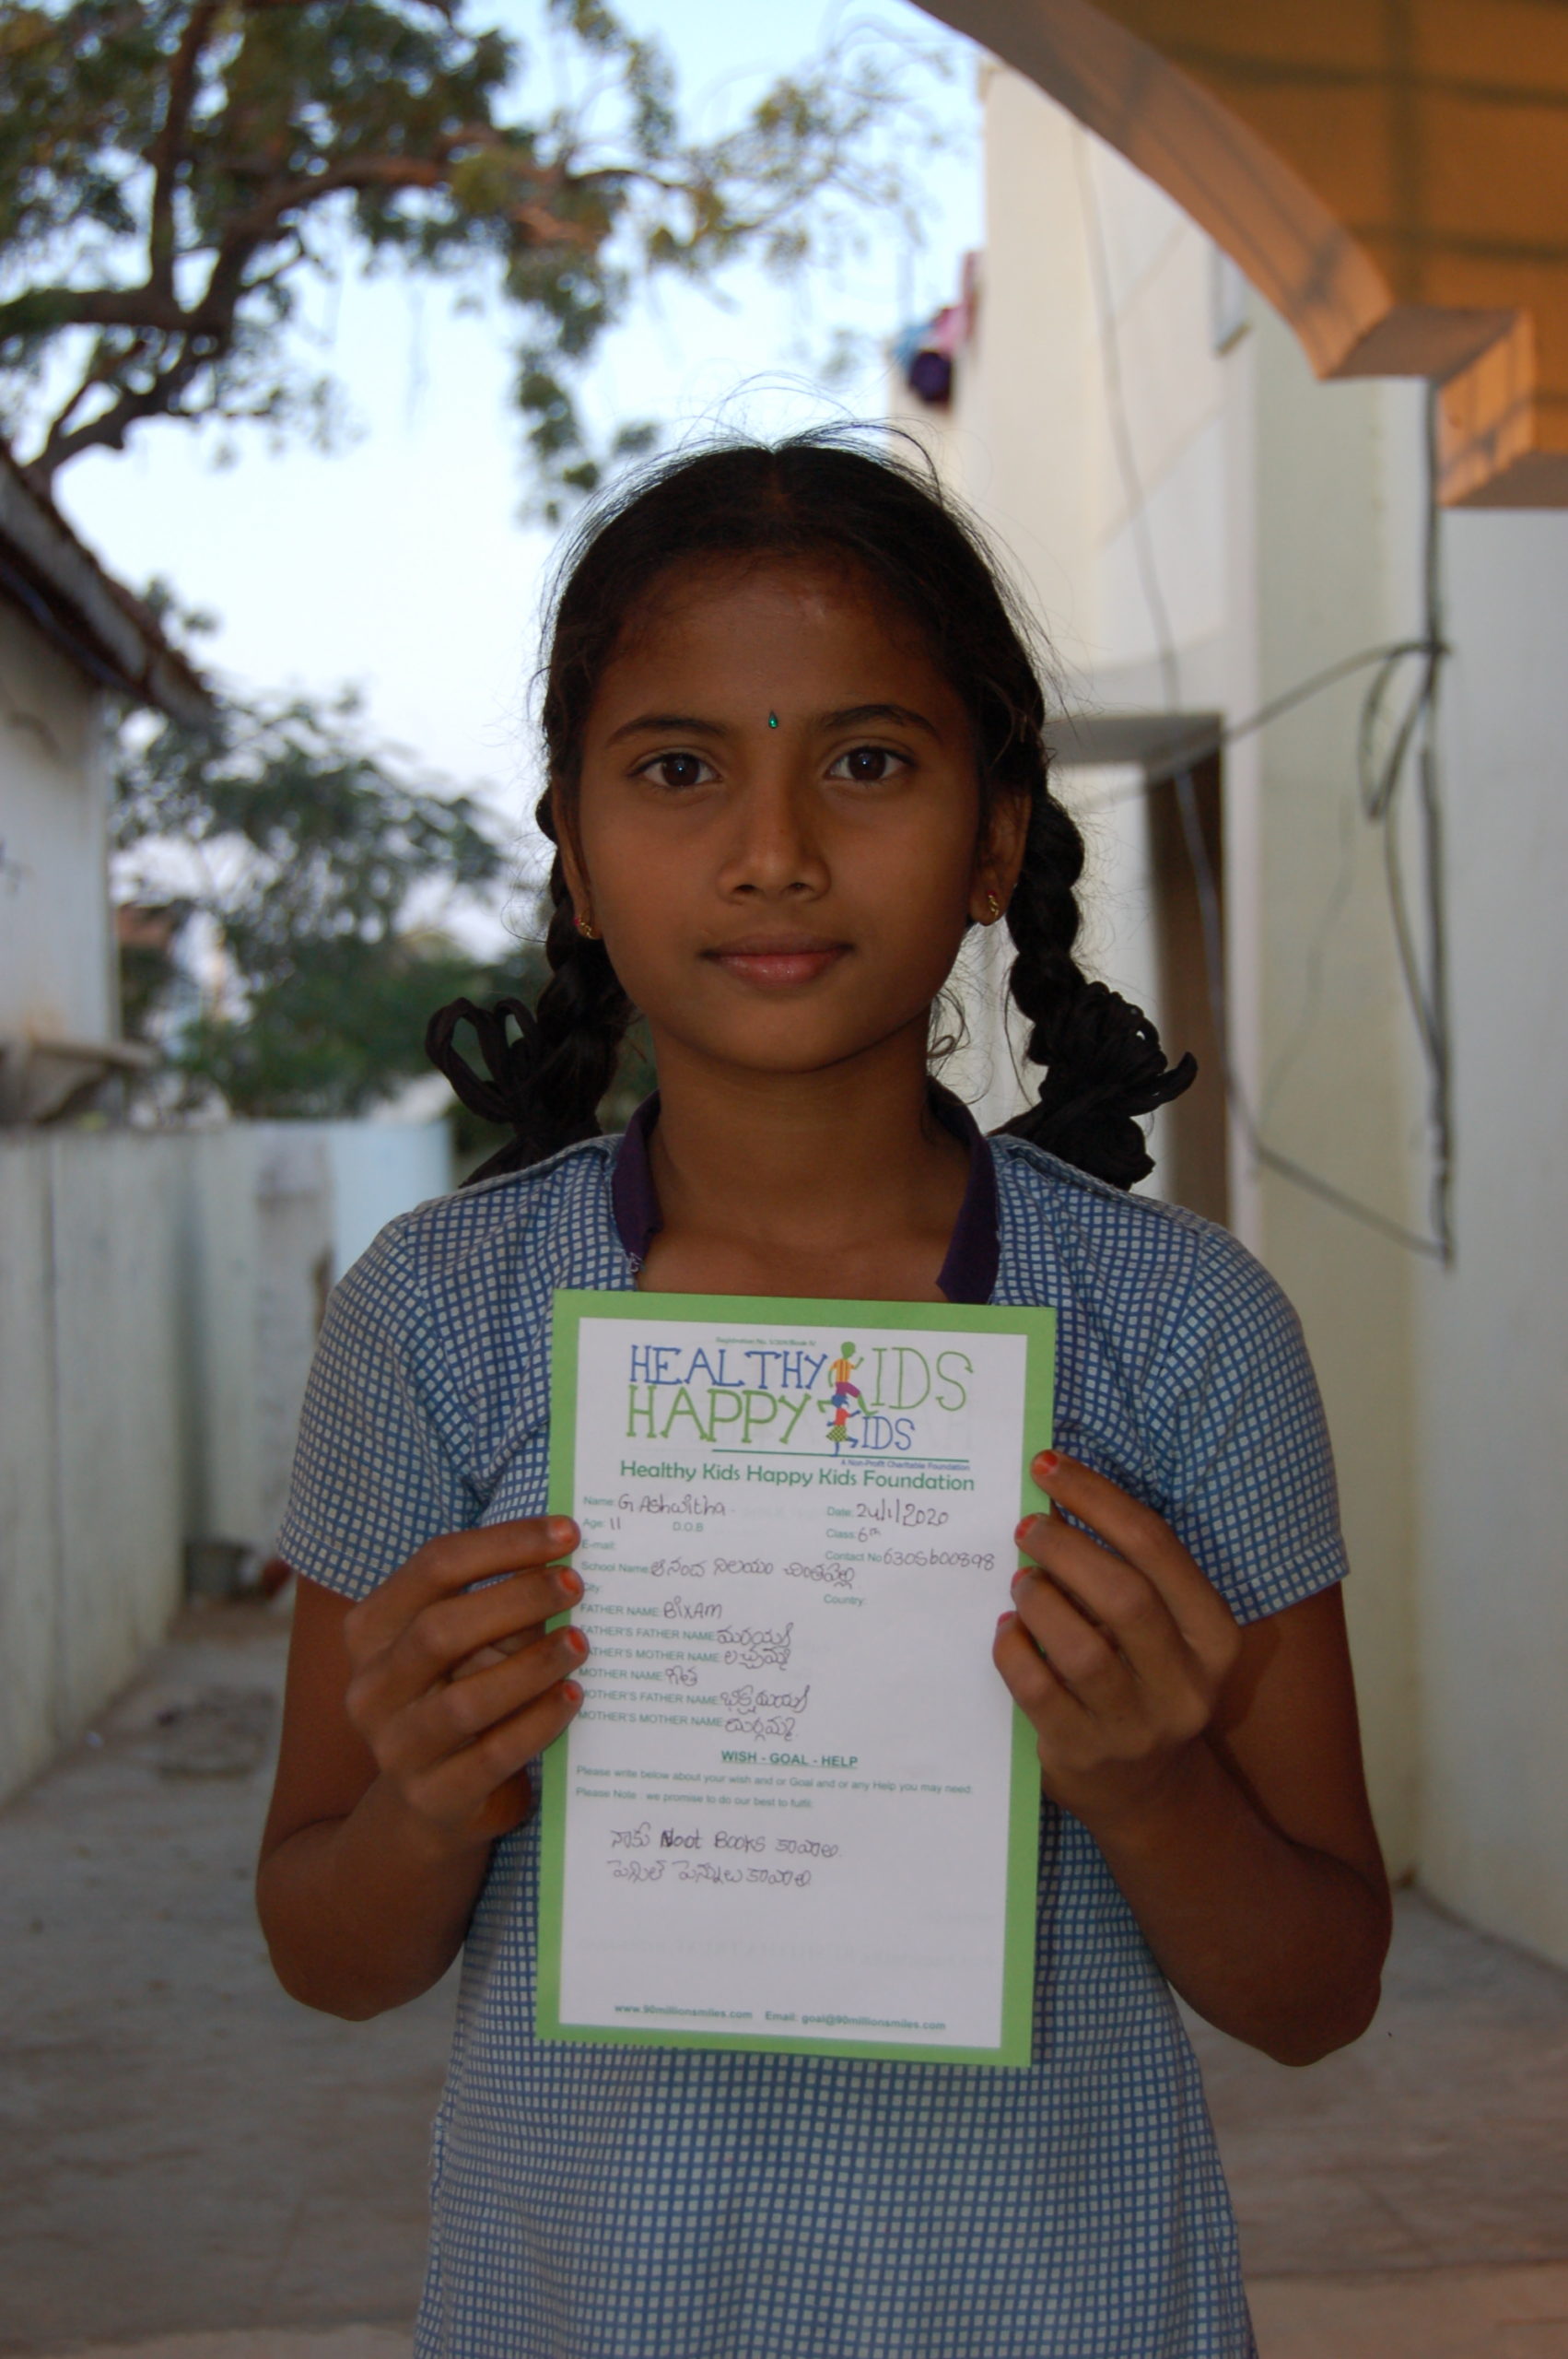 HEALTHY KIDS
HAPPY KIDS
A Non-Profit Charitable Foundation
Healthy Kids Happy Kids Foundation
Name: G Ashwitha. Date: 24/1/2020
Age: 11 D.O.B Class: 6th
E-mail: Contact No 6305600898
School Name: ఆనంద నిలయం చింతపల్లి
City: Country:
FATHER NAME: BIXAM
FATHER'S FATHER NAME:
FATHER'S MOTHER NAME: లచ్చమ్మ
MOTHER NAME: గీత
MOTHER'S FATHER NAME:
MOTHER'S MOTHER NAME:
WISH - GOAL - HELP
Please write below about your wish and or Goal and or any Help you may need:
Please Note : we promise to do our best to fulfil:
నాకు Noot Books కావాలి.
పెన్సిల్ పెన్నులు కావాలి
www.90millionsmiles.com Email: goal@90millionsmiles.com